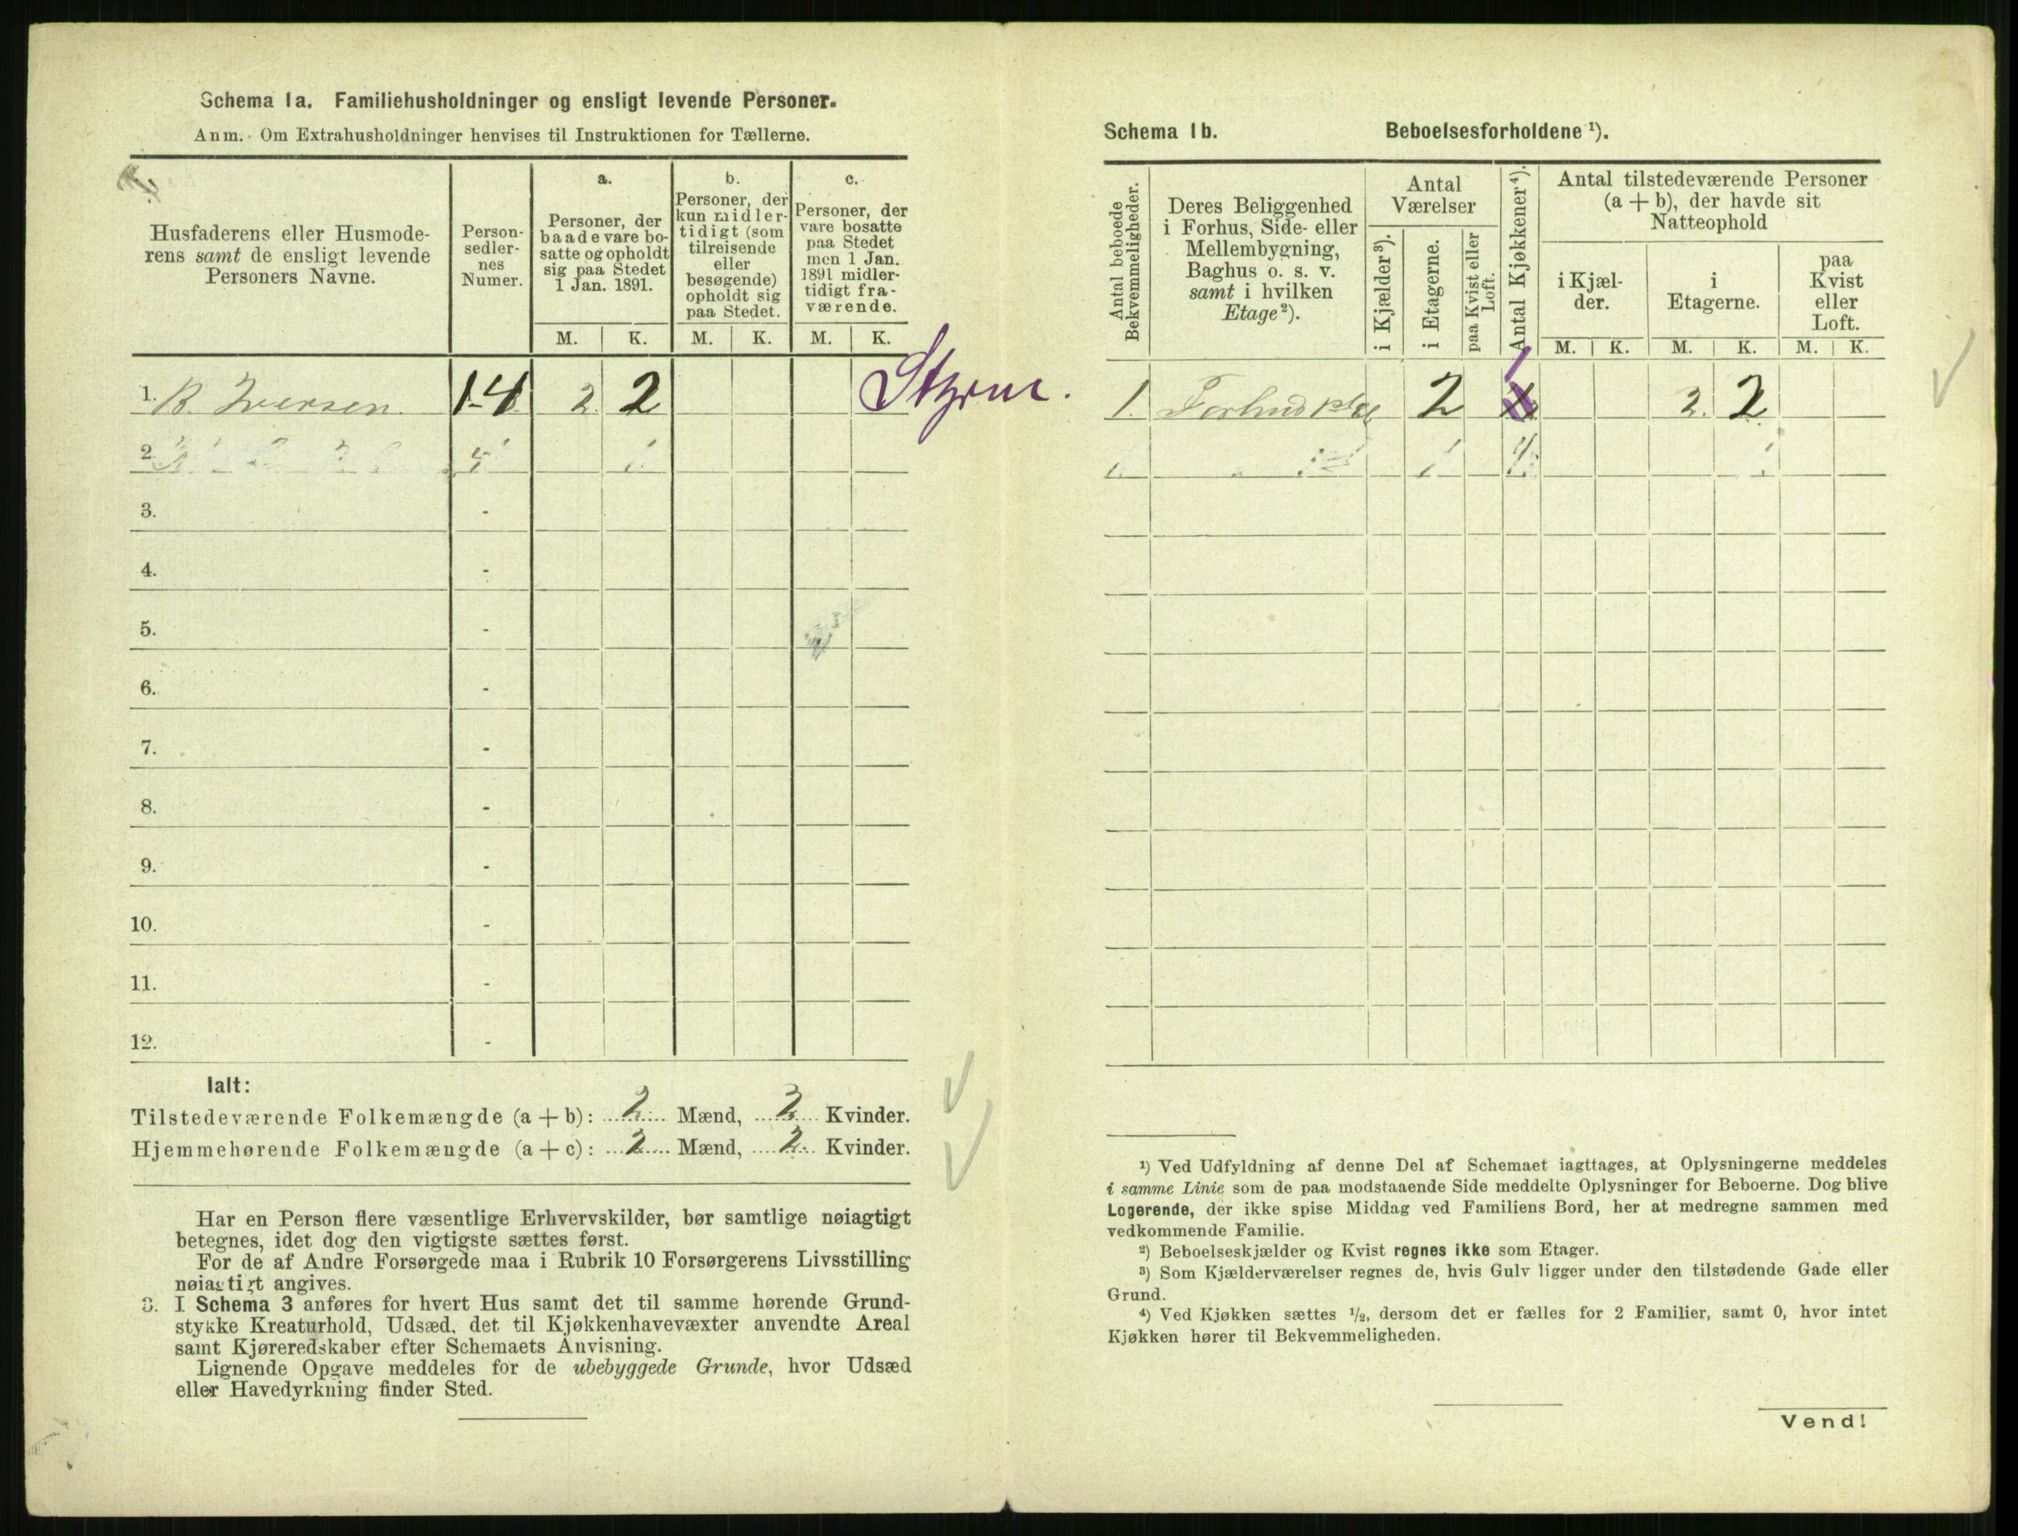 Schema 1a. Familiehusholdninger og ensligt levende Personer.
Anm. Om Extrahusholdninger henvises til Instruktionen for Tællerne.
Husfaderens eller Husmode-
rens samt de ensligt levende
Personers Navne.
Person-
sedler-
nes
Numer.
a.
Personer, der
baade vare bo-
satte og opholdt
sig paa Stedet
1 Jan. 1891.
b.
Personer, der
kun midler-
tidigt (som
tilreisende
eller
besøgende)
opholdt sig
paa Stedet.
c.
Personer, der
vare bosatte
paa Stedet
men 1 Jan.
1891 midler-
tidigt fra-
værende.
M. K. M. K. M. K.
1. B. Iversen. 1-4 2. 2
2.
3. -
4. -
5. -
6. -
7. -
8. -
9. -
10. -
11. -
12. -
Ialt:
Tilstedeværende Folkemængde (a + b): 2 Mænd, 2 Kvinder.
Hjemmehørende Folkemængde (a + c): 2 Mænd, 2 Kvinder.
Har en Person flere væsentlige Erhvervskilder, bør samtlige nøiagtigt
betegnes, idet dog den vigtigste sættes først.
For de af Andre Forsørgede maa i Rubrik 10 Forsørgerens Livsstilling
nøiagtigt angives.
3. I Schema 3 anføres for hvert Hus samt det til samme hørende Grund-
stykke Kreaturhold, Udsæd, det til Kjøkkenhavevæxter anvendte Areal
samt Kjøreredskaber efter Schemaets Anvisning.
Lignende Opgave meddeles for de ubebyggede Grunde, hvor Udsæd
eller Havedyrkning finder Sted.
Schema 1b. Beboelsesforholdene ¹).
Antal beboede
Bekvemmeligheder.
Deres Beliggenhed
i Forhus, Side- eller
Mellembygning,
Baghus o. s. v.
samt i hvilken
Etage ²).
Antal
Værelser
i Kjælder ³).
i Etagerne.
paa Kvist eller
Loft.
Antal Kjøkkener ⁴).
Antal tilstedeværende Personer
(a + b), der havde sit
Natteophold
i Kjæl-
der.
i
Etagerne.
paa
Kvist
eller
Loft.
M. K. M. K. M. K.
1. 2 2. 2
¹) Ved Udfyldning af denne Del af Schemaet iagttages, at Oplysningerne meddeles
i samme Linie som de paa modstaaende Side meddelte Oplysninger for Beboerne. Dog blive
Logerende, der ikke spise Middag ved Familiens Bord, her at medregne sammen med
vedkommende Familie.
²) Beboelseskjælder og Kvist regnes ikke som Etager.
³) Som Kjælderværelser regnes de, hvis Gulv ligger under den tilstødende Gade eller
Grund.
⁴) Ved Kjøkken sættes ½, dersom det er fælles for 2 Familier, samt 0, hvor intet
Kjøkken hører til Bekvemmeligheden.
Vend!